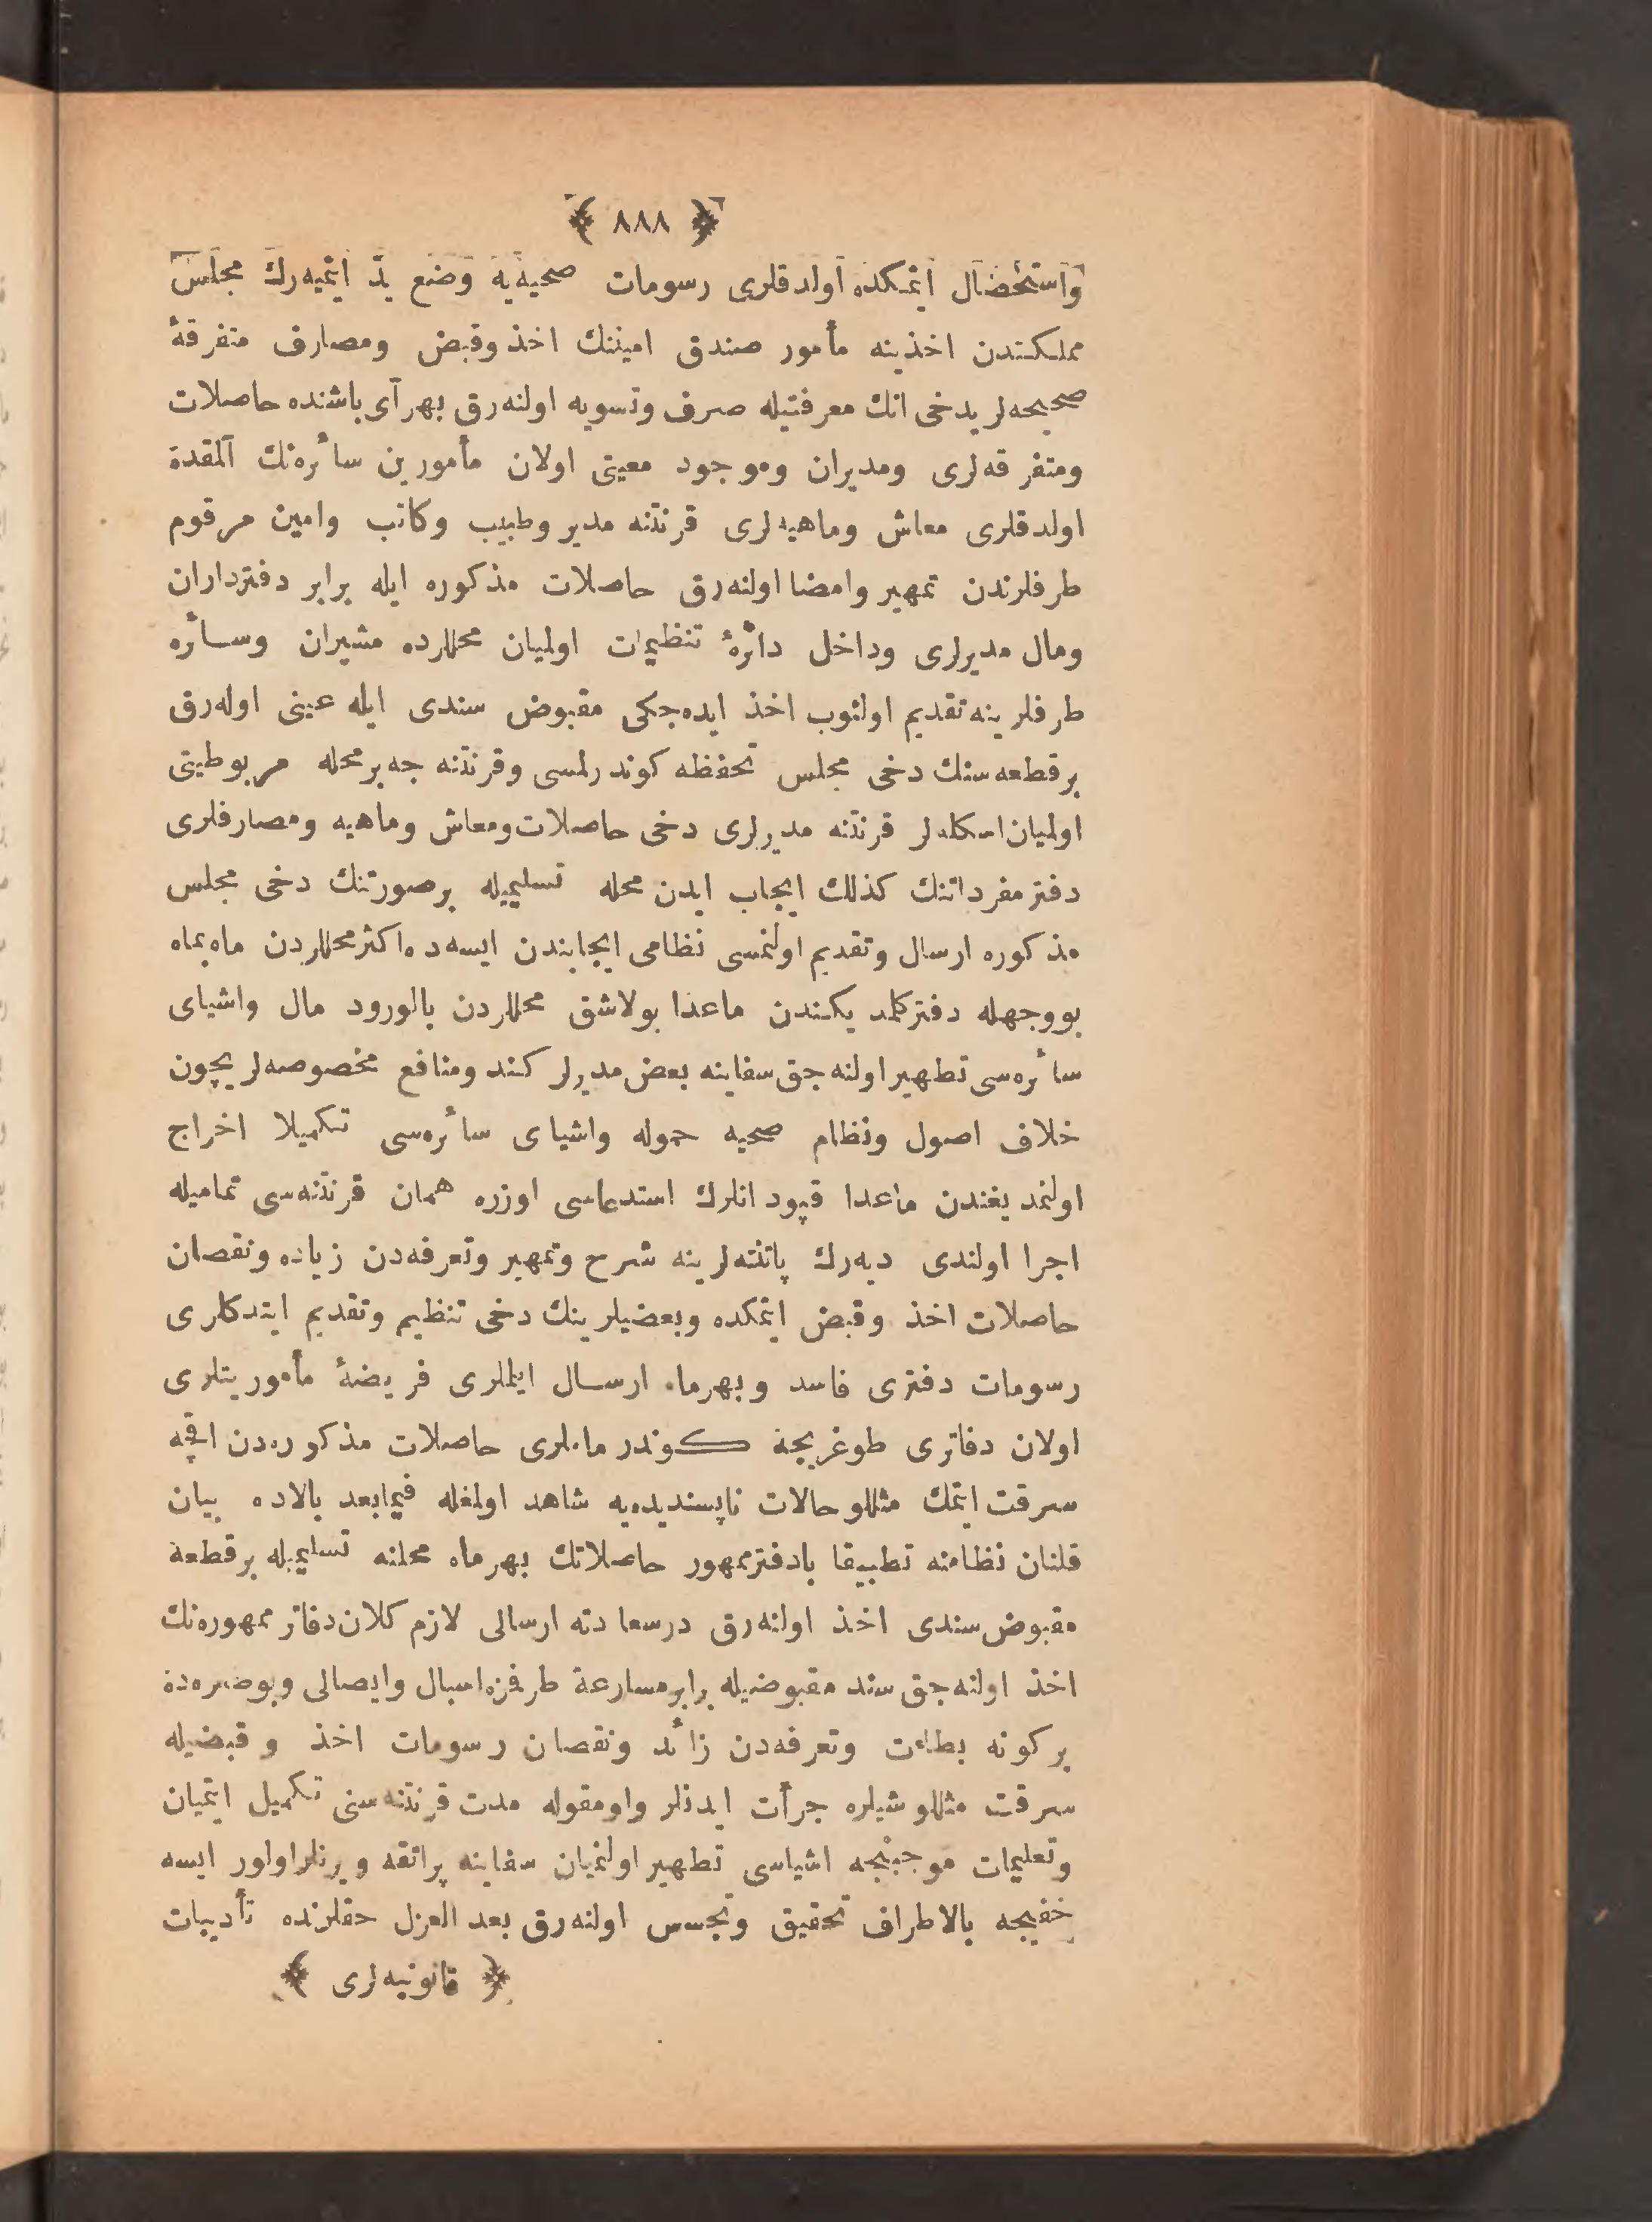 ﴿ ٨٨٨ ﴾
واستحصال ايتمكده اولدقلرى رسومات صحيه‌يه وضع يد ايتميه‌رك مجلس
مملكتدن اخذينه مأمور صندق امينك اخذ وقبض ومصارف متفرقهٔ
صحيحه‌لريدخى انك معرفتيله صرف وتسويه اولنه‌رق بهر آى باشنده حاصلات
ومتفرقه‌لرى ومديران وموجود معيتى اولان مأمورين سائره‌نك آلمقده
اولدقلرى معاش وماهيه‌لرى قرنتنه مدير وطبيب وكاتب وامين مرقوم
طرفلرندن تمهير وامضا اولنه‌رق حاصلات مذكوره ايله برابر دفترداران
ومال مديرلرى وداخل دائرهٔ تنظيمات اولميان محللرده مشيران وسائره
طرفلرينه تقديم اولنوب اخذ ايده‌جكى مقبوض سندى ايله عينى اوله‌رق
برقطعه‌سنك دخى مجلس تحفظه كوندرلمسى وقرنتنه جه برمحله مربوطيتى
اولميان اسكله‌لر قرنتنه مديرلرى دخى حاصلات ومعاش وماهيه ومصارفلرى
دفتر مفرداتنك كذلك ايجاب ايدن محله تسليميله برصورتنك دخى مجلس
مذكوره ارسال وتقديم اولنمسى نظامى ايجابندن ايسه‌ده اكثر محللردن ماه بماه
بووجهله دفتركلمديكندن ماعدا بولاشق محللردن بالورود مال واشياى
سائره‌سى تطهير اولنه‌جق سفاينه بعض مديرلر كند ومنافع مخصوصه‌لريچون
خلاف اصول ونظام صحيه حموله واشياى سائره‌سى تكميلا اخراج
اولنمديغندن ماعدا قپودانلرك استدعاسى اوزره همان قرنتنه‌سى تماميله
اجرا اولندى ديه‌رك پاتنته‌لرينه شرح وتمهير وتعرفه‌دن زياده ونقصان
حاصلات اخذ وقبض ايتمكده وبعضيلرينك دخى تنظيم وتقديم ايتدكلرى
رسومات دفترى فاسد وبهرماه ارسال ايلملرى فريضهٔ مأموريتلرى
اولان دفاترى طوغريجه كوندرمامه‌لرى حاصلات مذكوره‌دن اقچه
سرقت ايتمك مثللو حالات ناپسنديده‌يه شاهد اولمغله فيمابعد بالاده بيان
قلنان نظامنه تطبيقا بادفتر ممهور حاصلاتك بهر ماه محلنه تسليميله برقطعه
مقبوض سندى اخذ اولنه‌رق درسعادته ارسالى لازم كلان دفاتر ممهوره‌نك
اخذ اولنه‌جق سند مقبوضيله برابر مسارعة طرفزه اسبال وايصالى وبوصره‌ده
بركونه بطائت وتعرفه‌دن زائد ونقصان رسومات اخذ وقبضيله
سرقت مثللو شيلره جرأت ايدنلر واومقوله مدت قرنتنه‌سنى تكميل ايتميان
وتعليمات موجبنجه اشياسى تطهير اولنميان سفاينه پراتقه ويرنلر اولور ايسه
خفيجه بالاطراف تحقيق وتجسس اولنه‌رق بعد العزل حقلرنده تأديبات
﴿ قانونيه‌لرى ﴾